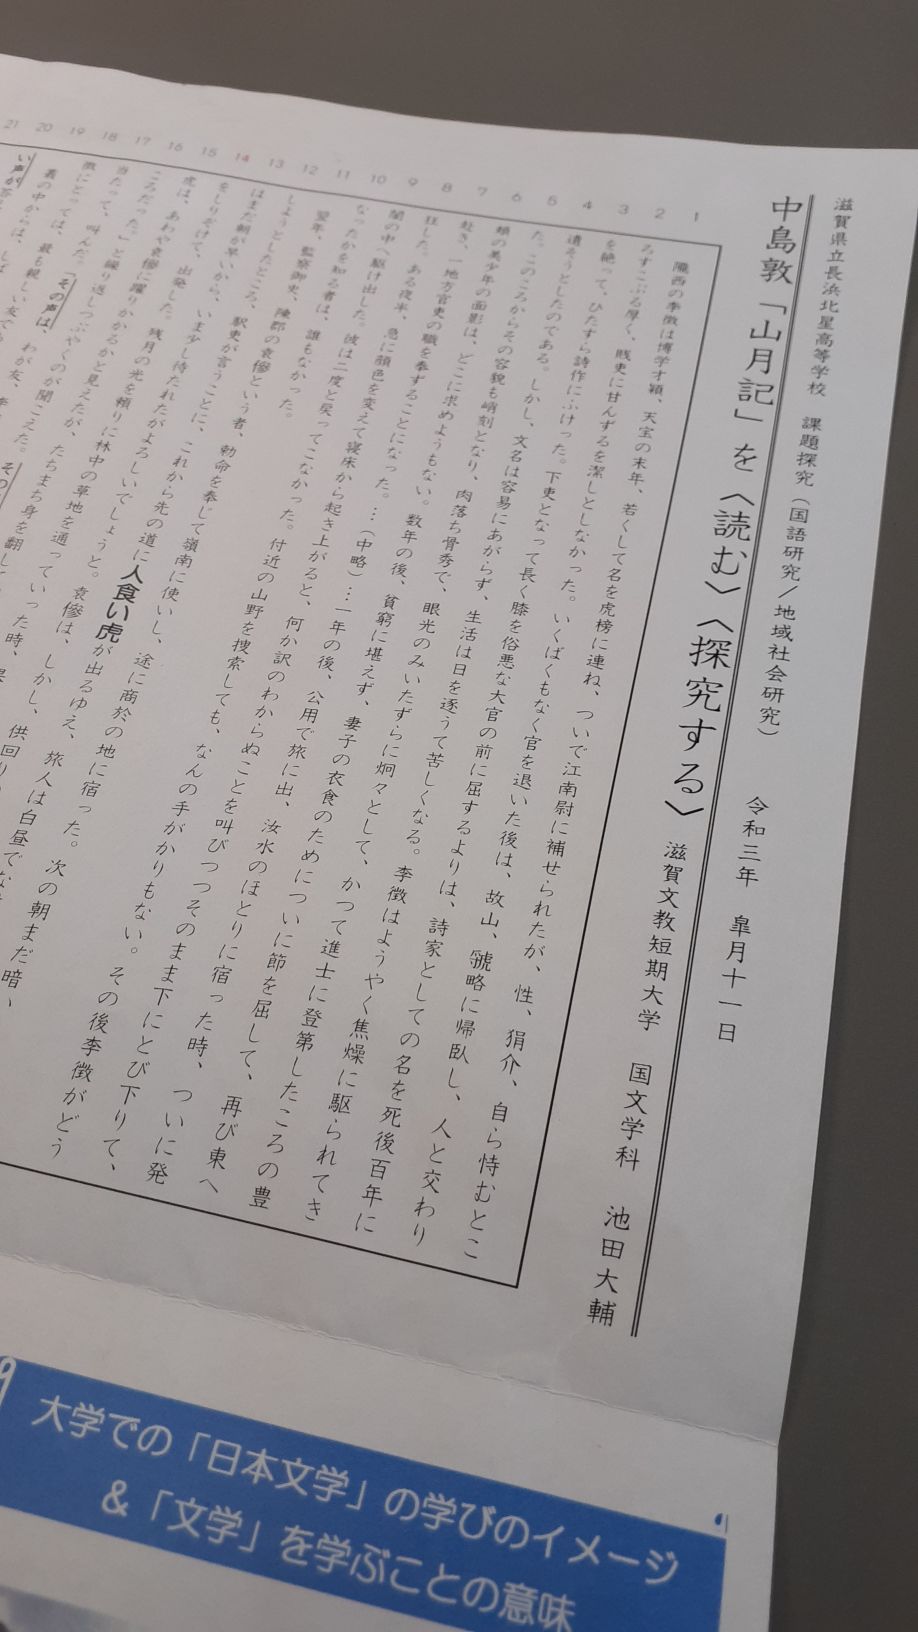 滋賀県立長浜北星高等学校　課題探究（国語研究／地域社会研究）　令和三年　皐月十一日
中島敦「山月記」を〈読む〉〈探究する〉　滋賀文教短期大学　国文学科　池田大輔
1 2 3 4 5 6 7 8 9 10 11 12 13 14 15 16 17 18 19 20 21
隴西の李徴は博学才穎、天宝の末年、若くして名を虎榜に連ね、ついで江南尉に補せられたが、性、狷介、自ら恃むとこ
ろすこぶる厚く、賤吏に甘んずるを潔しとしなかった。いくばくもなく官を退いた後は、故山、虢略に帰臥し、人と交わり
を絶って、ひたすら詩作にふけった。下吏となって長く膝を俗悪な大官の前に屈するよりは、詩家としての名を死後百年に
遺そうとしたのである。しかし、文名は容易にあがらず、生活は日を逐うて苦しくなる。李徴はようやく焦燥に駆られてき
た。このころからその容貌も峭刻となり、肉落ち骨秀で、眼光のみいたずらに炯々として、かつて進士に登第したころの豊
頰の美少年の面影は、どこに求めようもない。数年の後、貧窮に堪えず、妻子の衣食のためについに節を屈して、再び東へ
赴き、一地方官吏の職を奉ずることになった。…（中略）…一年の後、公用で旅に出、汝水のほとりに宿った時、ついに発
狂した。ある夜半、急に顔色を変えて寝床から起き上がると、何か訳のわからぬことを叫びつつそのまま下にとび下りて、
闇の中へ駆け出した。彼は二度と戻ってこなかった。付近の山野を捜索しても、なんの手がかりもない。その後李徴がどう
なったかを知る者は、誰もなかった。
翌年、監察御史、陳郡の袁傪という者、勅命を奉じて嶺南に使いし、途に商於の地に宿った。次の朝まだ暗い
しようとしたところ、駅吏が言うことに、これから先の道に人食い虎が出るゆえ、旅人は白昼でな
はまだ朝が早いから、いま少し待たれたがよろしいでしょうと。袁傪は、しかし、供回り
をしりぞけて、出発した。残月の光を頼りに林中の草地を通っていった時、
虎は、あわや袁傪に躍りかかるかと見えたが、たちまち身を翻して
ころだった。」と繰り返しつぶやくのが聞こえた。その
当たって、叫んだ。「その声は、わが友、李
徴にとっては、最も親しい友で
叢の中からは、しば
い声が
大学での「日本文学」の学びのイメージ
＆「文学」を学ぶことの意味